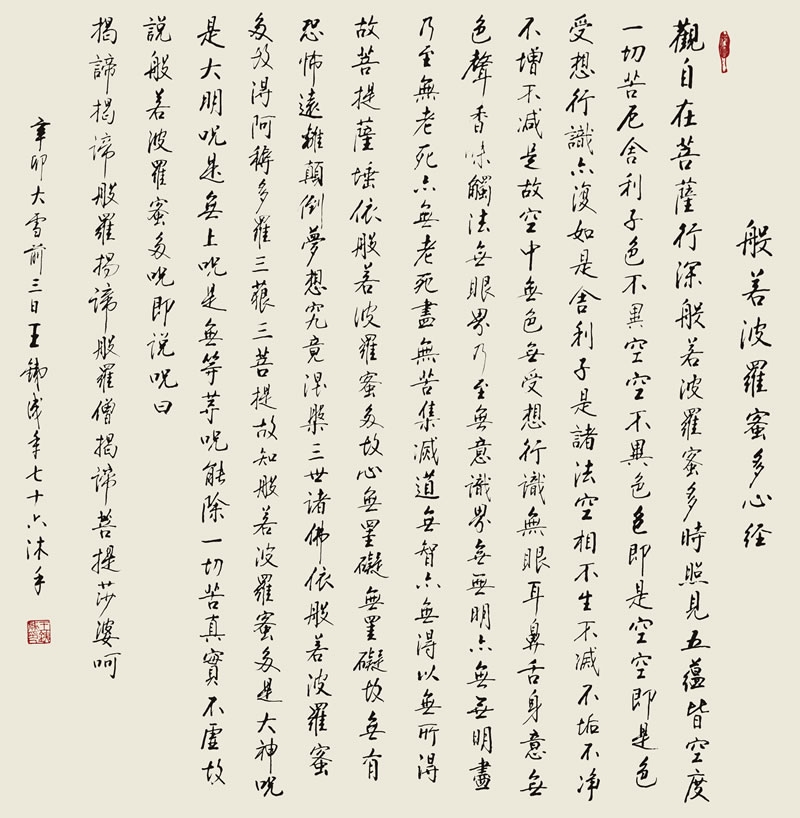 般若波羅蜜多心经
觀自在菩薩行深般若波羅蜜多時照見五蘊皆空度
一切苦厄舍利子色不異空空不異色色即是空空即是色
受想行識亦復如是舍利子是諸法空相不生不滅不垢不净
不增不減是故空中無色無受想行識無眼耳鼻舌身意無
色聲香味觸法無眼界乃至無意識界無無明亦無無明盡
乃至無老死亦無老死盡無苦集滅道無智亦無得以無所得
故菩提薩埵依般若波羅蜜多故心無罣礙無罣礙故無有
恐怖遠離顛倒夢想究竟涅槃三世諸佛依般若波羅蜜
多故得阿耨多羅三藐三菩提故知般若波羅蜜多是大神咒
是大明咒是無上咒是無等等咒能除一切苦真實不虛故
説般若波羅蜜多咒即説咒曰
揭諦揭諦般羅揭諦般羅僧揭諦菩提莎婆呵
辛卯大雪前三日王鑄成年七十六沐手